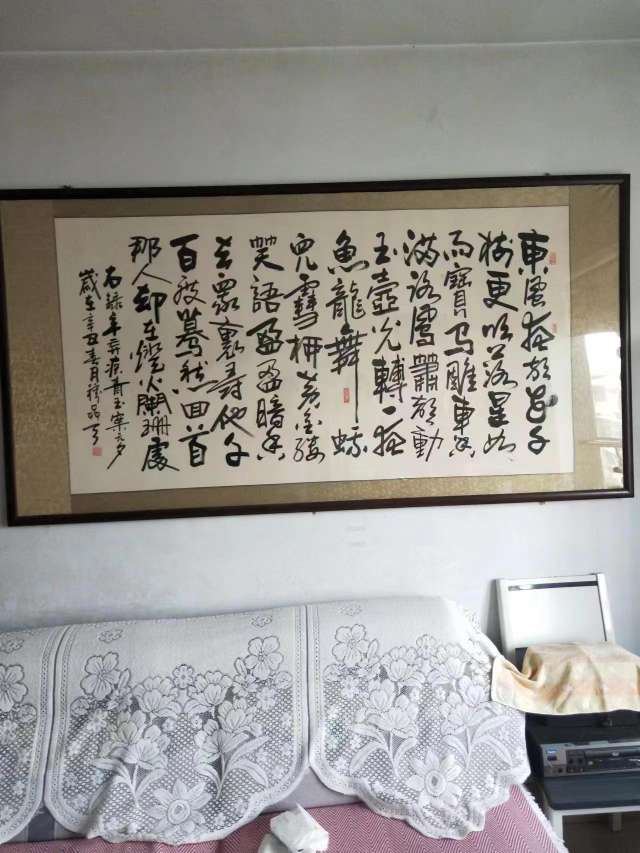 東風夜放花千
樹更吹落星如
雨寶马雕車香
满路鳳簫聲動
玉壺光轉一夜
魚龍舞蛾
兒雪柳黄金縷
笑語盈盈暗香
去眾裏尋他千
百度驀然回首
那人却在燈火闌珊處
右録辛弃疾青玉案元夕
歲在辛丑春月